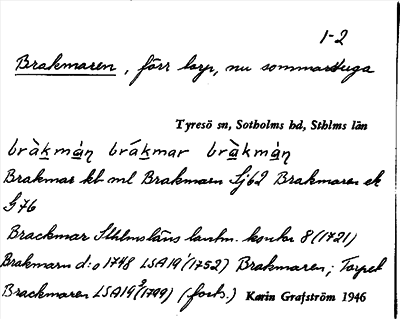 1-2
Brakmaren, förr torp, nu sommarstuga
Tyresö sn, Sotholms hd, Sthlms län
bràkmáṇ brákmar bràkmàṇ
Brakmar kb ml Brakmarn Sj62 Brakmaren ek
G76
Brackmar Sthlmsläns lantm. kontor 8 (1721)
Brakmarn d:o 1748 LSA19¹(1752) Brakmaren; Torpet
Brackmaren LSA19³(1799) (forts.) Karin Grafström 1946